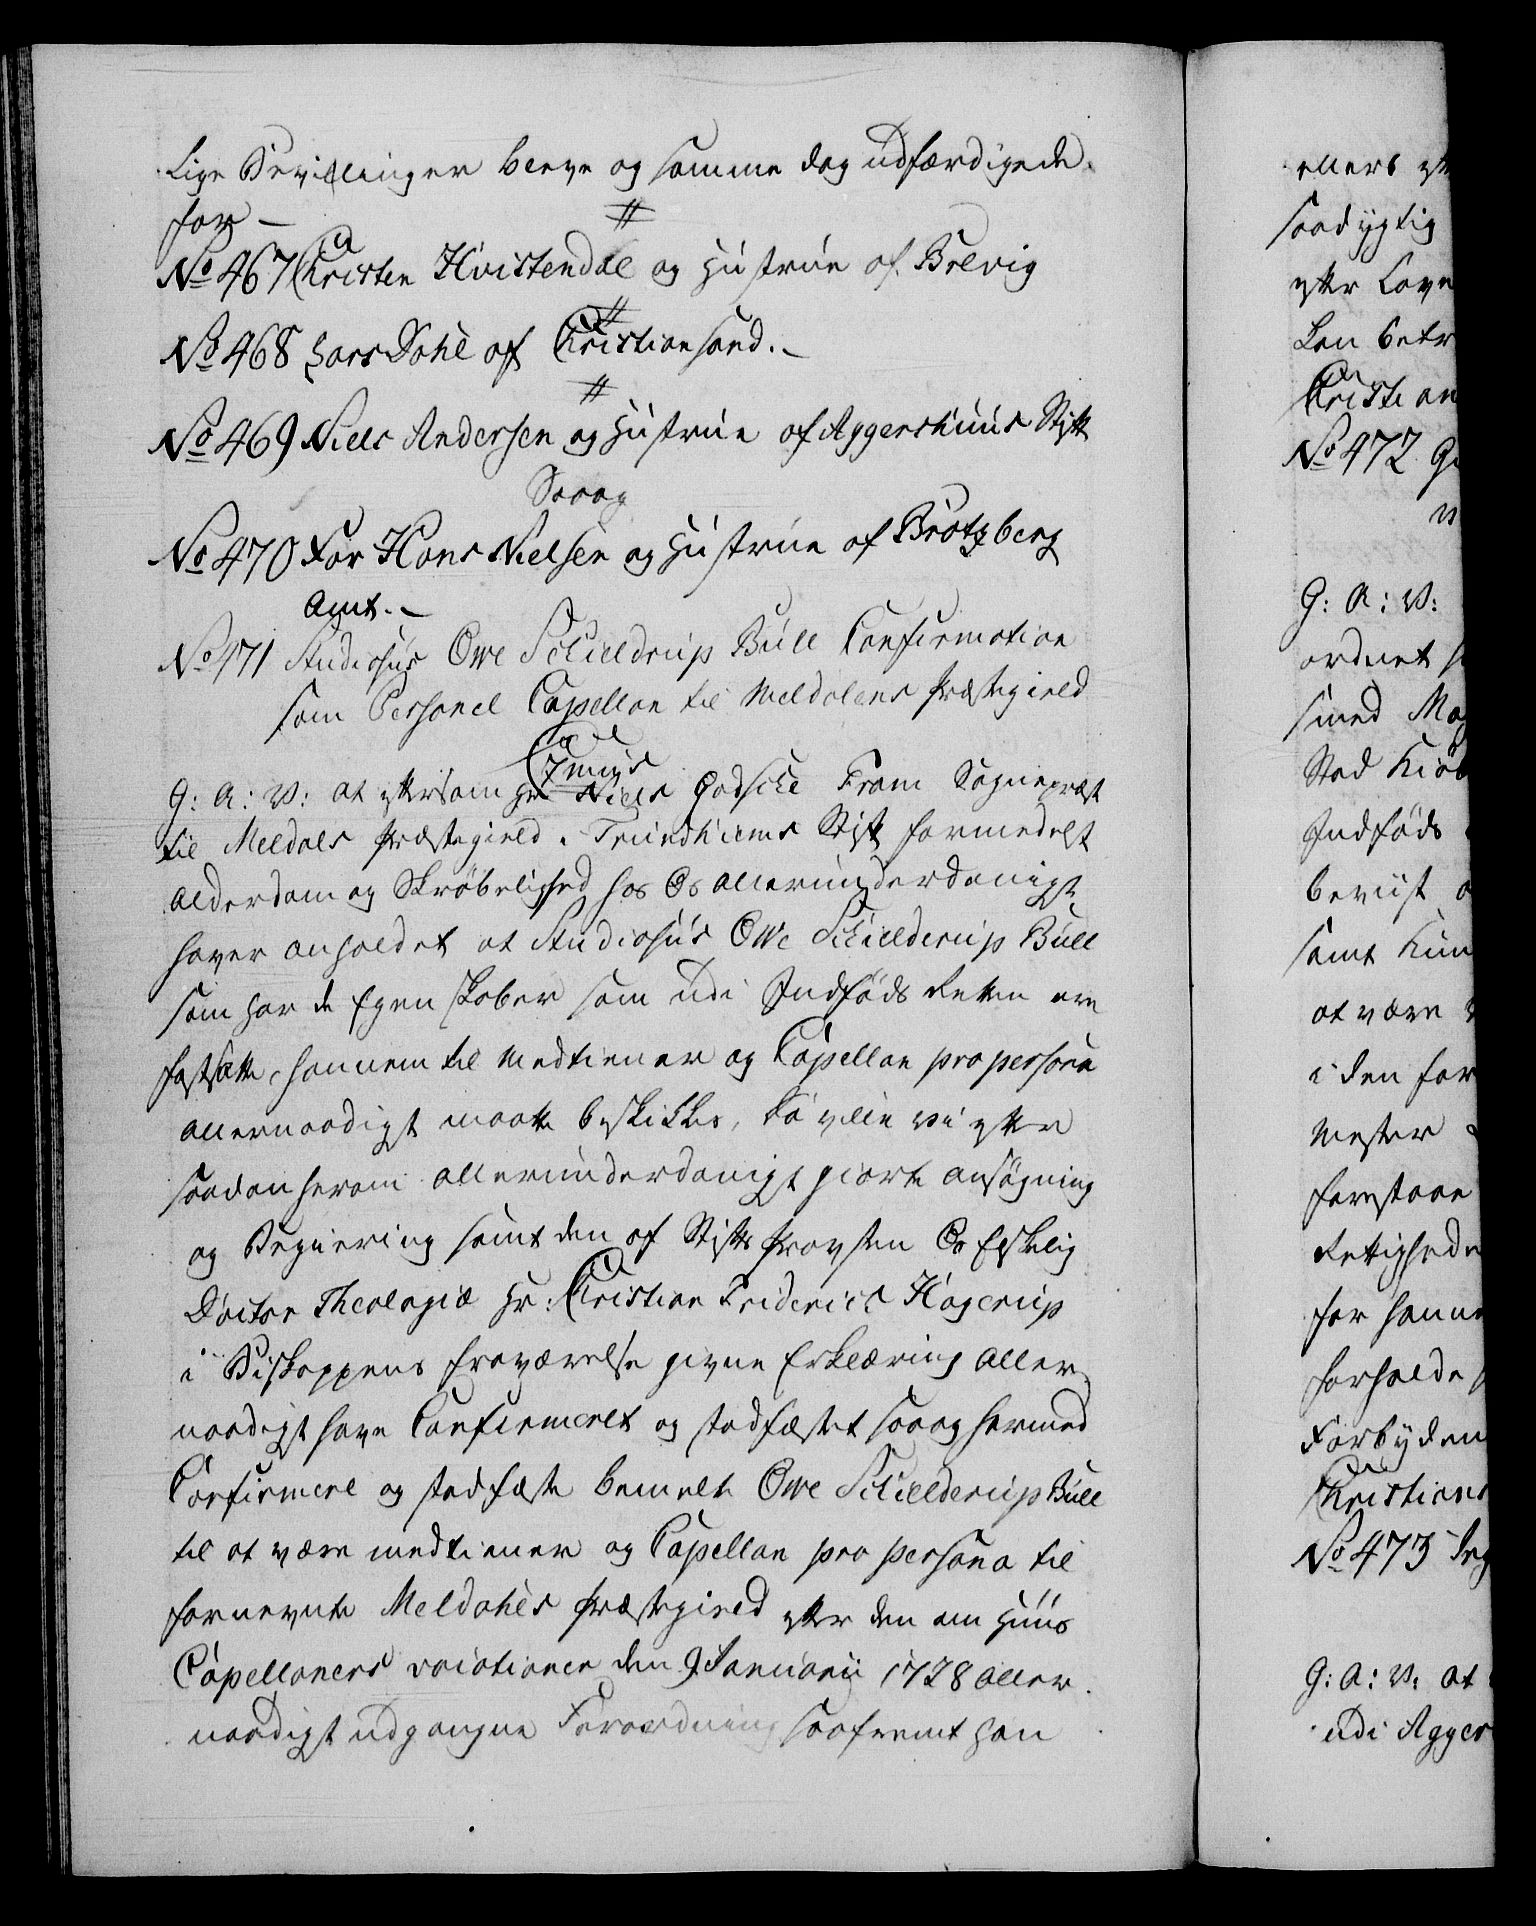 Lige Bevillinger bleve og samme dag udfærdigede
for —
No 467 Christen Hvistendal og Hustrue af Brevig
No 468 Lars Dohl af Christiansand. –
No 469 Niels Andersen og Hustrue af Aggershuus Stift
Saaog
No 470 For Hans Nielsen og Hustrue af Bratzberg
Amt. –
No 471 Studiosus Owe Schielderup Bull Confirmation
som Personel Capellan til Meldalens Præstegield
G: A: V: at eftersom Hr Niels Godsche Fram Sognepræst
til Meldals Præstegield i Trundhiems Stift formedelst
Alderdom og Skrøbelighed hos Os allerunderdanigst
haver anholdet at Studiosus Owe Schielderup Bull
som har de Egenskaber som udi Indføds Retten ere
fastsatte, hannem til Medtiener og Capellan pro persona
allernaadigst maatte beskikkes, Da ville Vi efter
saadan herom allerunderdanigst giorte ansøgning
og Begiering samt den af Stifts Provsten Os Elskelig
Doctor Theologiæ Hr: Christian Friderich Hagerup
i Biskoppens fraværelse givne Erklæring Aller-
naadigst have Confirmeret og stadfæstet saaog hermed
Confirmere og stadfæste bemelte Owe Schielderup Bull
til at være medtiener og Capellan pro persona til
fornevnte Meldahls Præstegield efter den om Huus
Capellaners vocationer den 9 Januarii 1728 aller-
naadigst udgangne Forordning saafremt han
ellers
saadygtig
efter Lov
Kan betr
Christian
No 472
G: A: V:
ordnet
smed
Stad Kiøb
Indføds
beviist
samt Kun
at være
i den for
Mester
forestaae
Rettighede
for hann
forholde
Forbyden
Christians
No 473
G: A: V: at
udi Agger